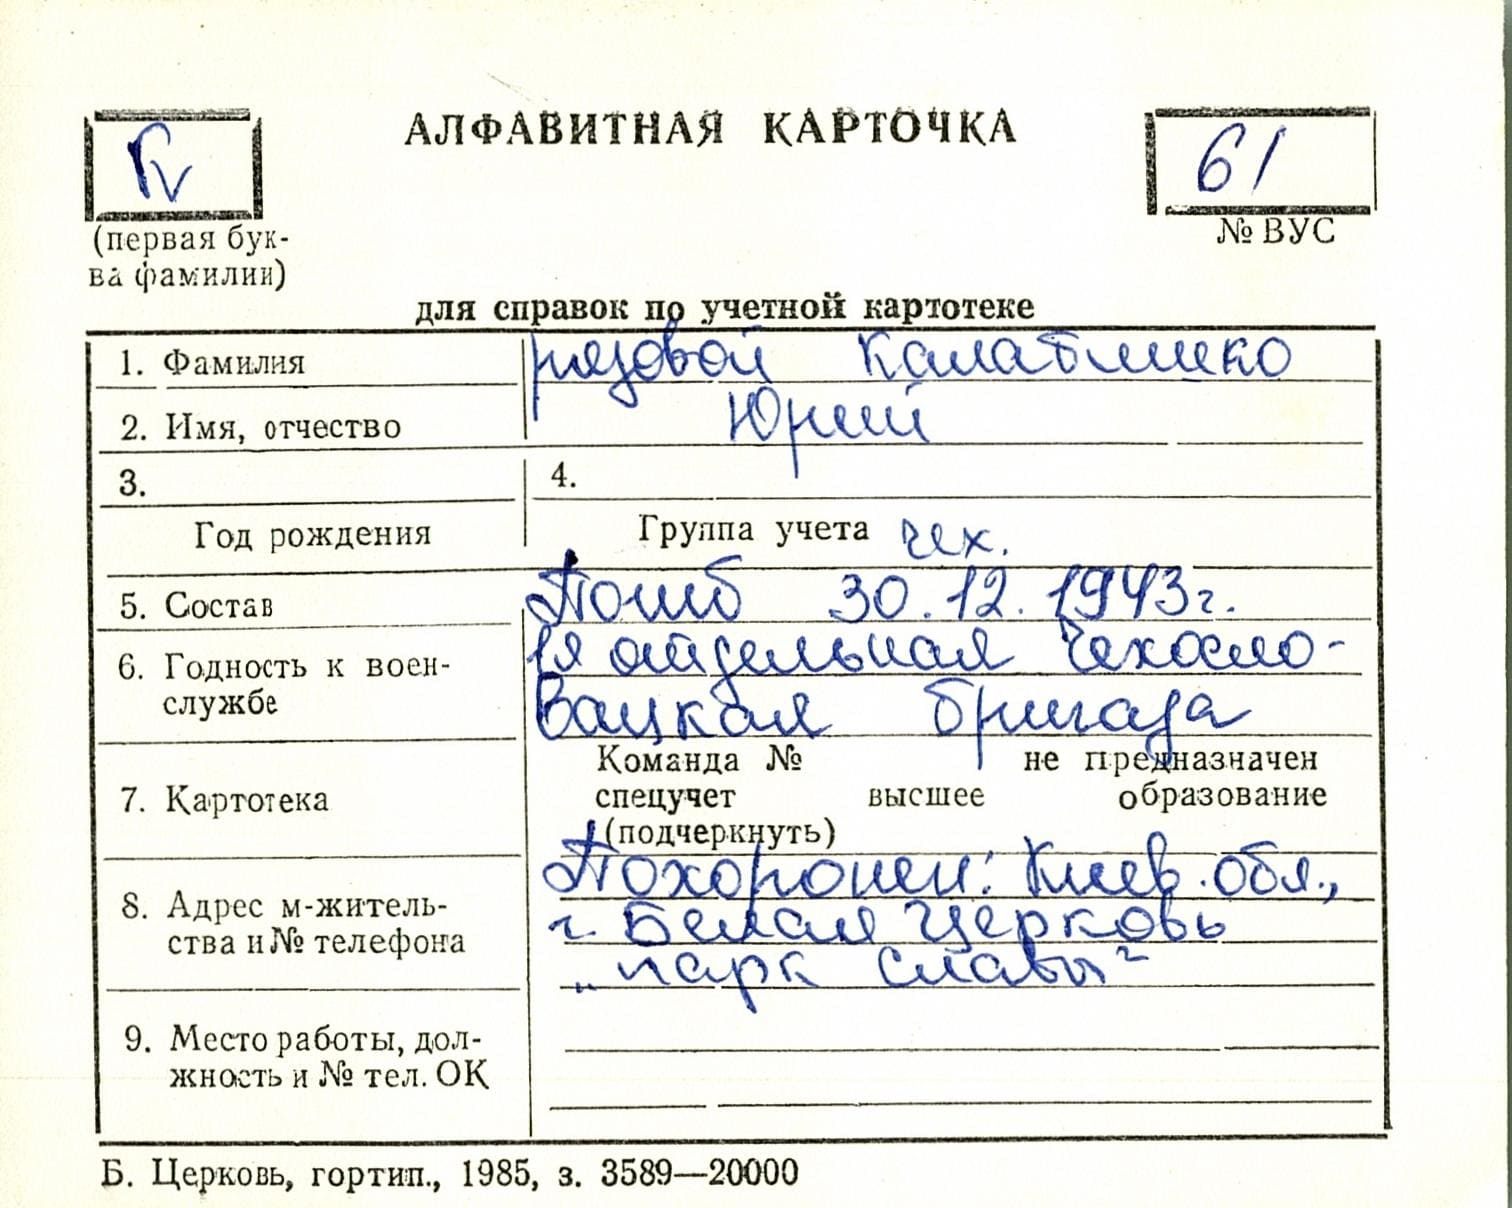 АЛФАВИТНАЯ КАРТОЧКА
61
(первая бук-
ва фамилии)
№ ВУС
для справок по учетной картотеке
1. Фамилия рядовой Калабишко
2. Имя, отчество Юрий
3. 4.
Год рождения Группа учета чех.
5. Состав Погиб 30.12.1943 г.
6. Годность к воен-
службе
1я отдельная Чехосло-
вацкая бригада
7. Картотека
Команда № не предназначен
спецучет высшее образование
(подчеркнуть)
8. Адрес м-житель-
ства и № телефона
Похоронен: Киев. обл.,
г. Белая Церковь
„парк Славы"
9. Место работы, дол-
жность и № тел. ОК
Б. Церковь, гортип., 1985, з. 3589—20000